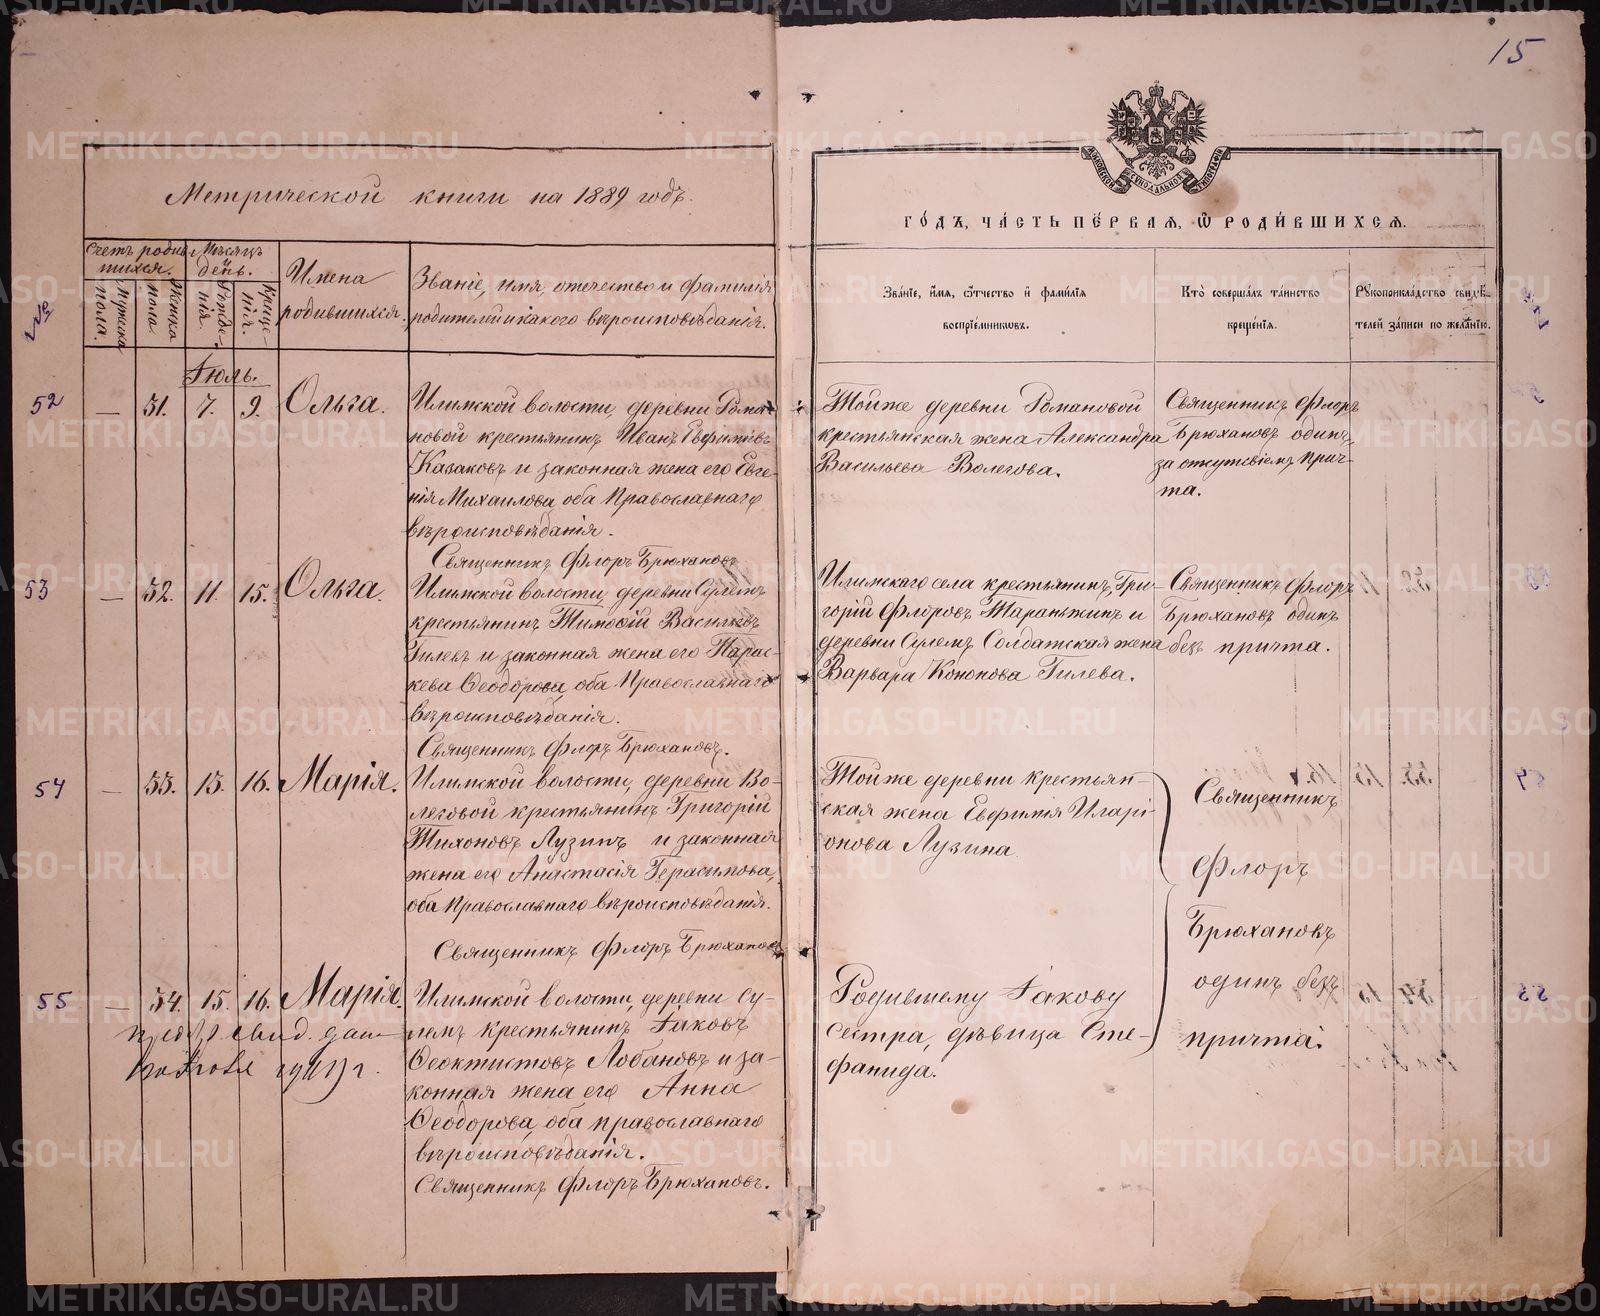 15
Метрической книги на 1889 годъ.
Счетъ родив-
шихся.
Мѣсяцъ
и
день.
Имена
родившихся.
Званіе, имя, отечество и фамилія
родителей и какого вѣроисповѣданія.
Мужеска
пола.
Женска
пола
Рожде-
нія.
Креще-
нія.
МОСКОВСКОЙ СѴНОДАЛЬНОЙ ТИПОГРАФІИ
ГО́ДЪ, ЧА́СТЬ ПЕ́РВАЯ, Ѽ РОДИ́ВШИХСЯ.
Зва́нїе, и́мя, ѻ҆́тчество и҆ фамі́лїа
воспрїе́мниковъ.
Кто̀ соверша́лъ та́инство
креще́нїя.
Рꙋкоприкла́дство свидѣ́-
телей за́писи по жела́нїю.
Іюль.
52
— 51. 7. 9. Ольга.
Илимской волости, деревни Рома-
новой крестьянинъ Иванъ Евфимовъ
Казаковъ и законная жена его Евге-
нія Михаилова, оба Православнаго
вѣроисповѣданія.
Священникъ Флоръ Брюхановъ
Той же деревни Романовой
крестьянская жена Александра
Васильева Волегова.
Священникъ Флоръ
Брюхановъ одинъ,
за отсутсвіемъ прич-
та.
53
— 52. 11. 15. Ольга.
Илимской волости, деревни Сулемъ
крестьянинъ Тимофій Васильевъ
Гилевъ и законная жена его Парас-
кева Ѳеодорова, оба Православнаго
вѣроисповѣданія.
Священникъ Флоръ Брюхановъ.
Илимскаго села крестьянинъ Гри-
горій Флоровъ Тараньжинъ и
деревни Сулемъ Солдатская жена
Варвара Кононова Гилева.
Священникъ Флоръ
Брюхановъ одинъ
безъ причта.
54
— 53. 13. 16. Марія.
Илимской волости, деревни Во-
леговой крестьянинъ Григорій
Тихоновъ Лузинъ и законная
жена его Анастасія Герасимова,
оба Православнаго вѣроисповѣданія.
Священникъ Флоръ Брюхановъ
Той же деревни крестьян-
ская жена Евфимія Иларі-
онова Лузина
Священникъ
Флоръ
Брюхановъ
одинъ безъ
причта.
55
— 54. 15. 16. Марія.
Илимской волости, деревни Су-
лемъ крестьянинъ Іаковъ
Ѳеоктистовъ Лобановъ и за-
конная жена его Анна
Ѳеодорова, оба православнаго
вѣроисповѣданія.
Священникъ Флоръ Брюхановъ.
Родившему Іакову
сестра, дѣвица Сте-
фанида.